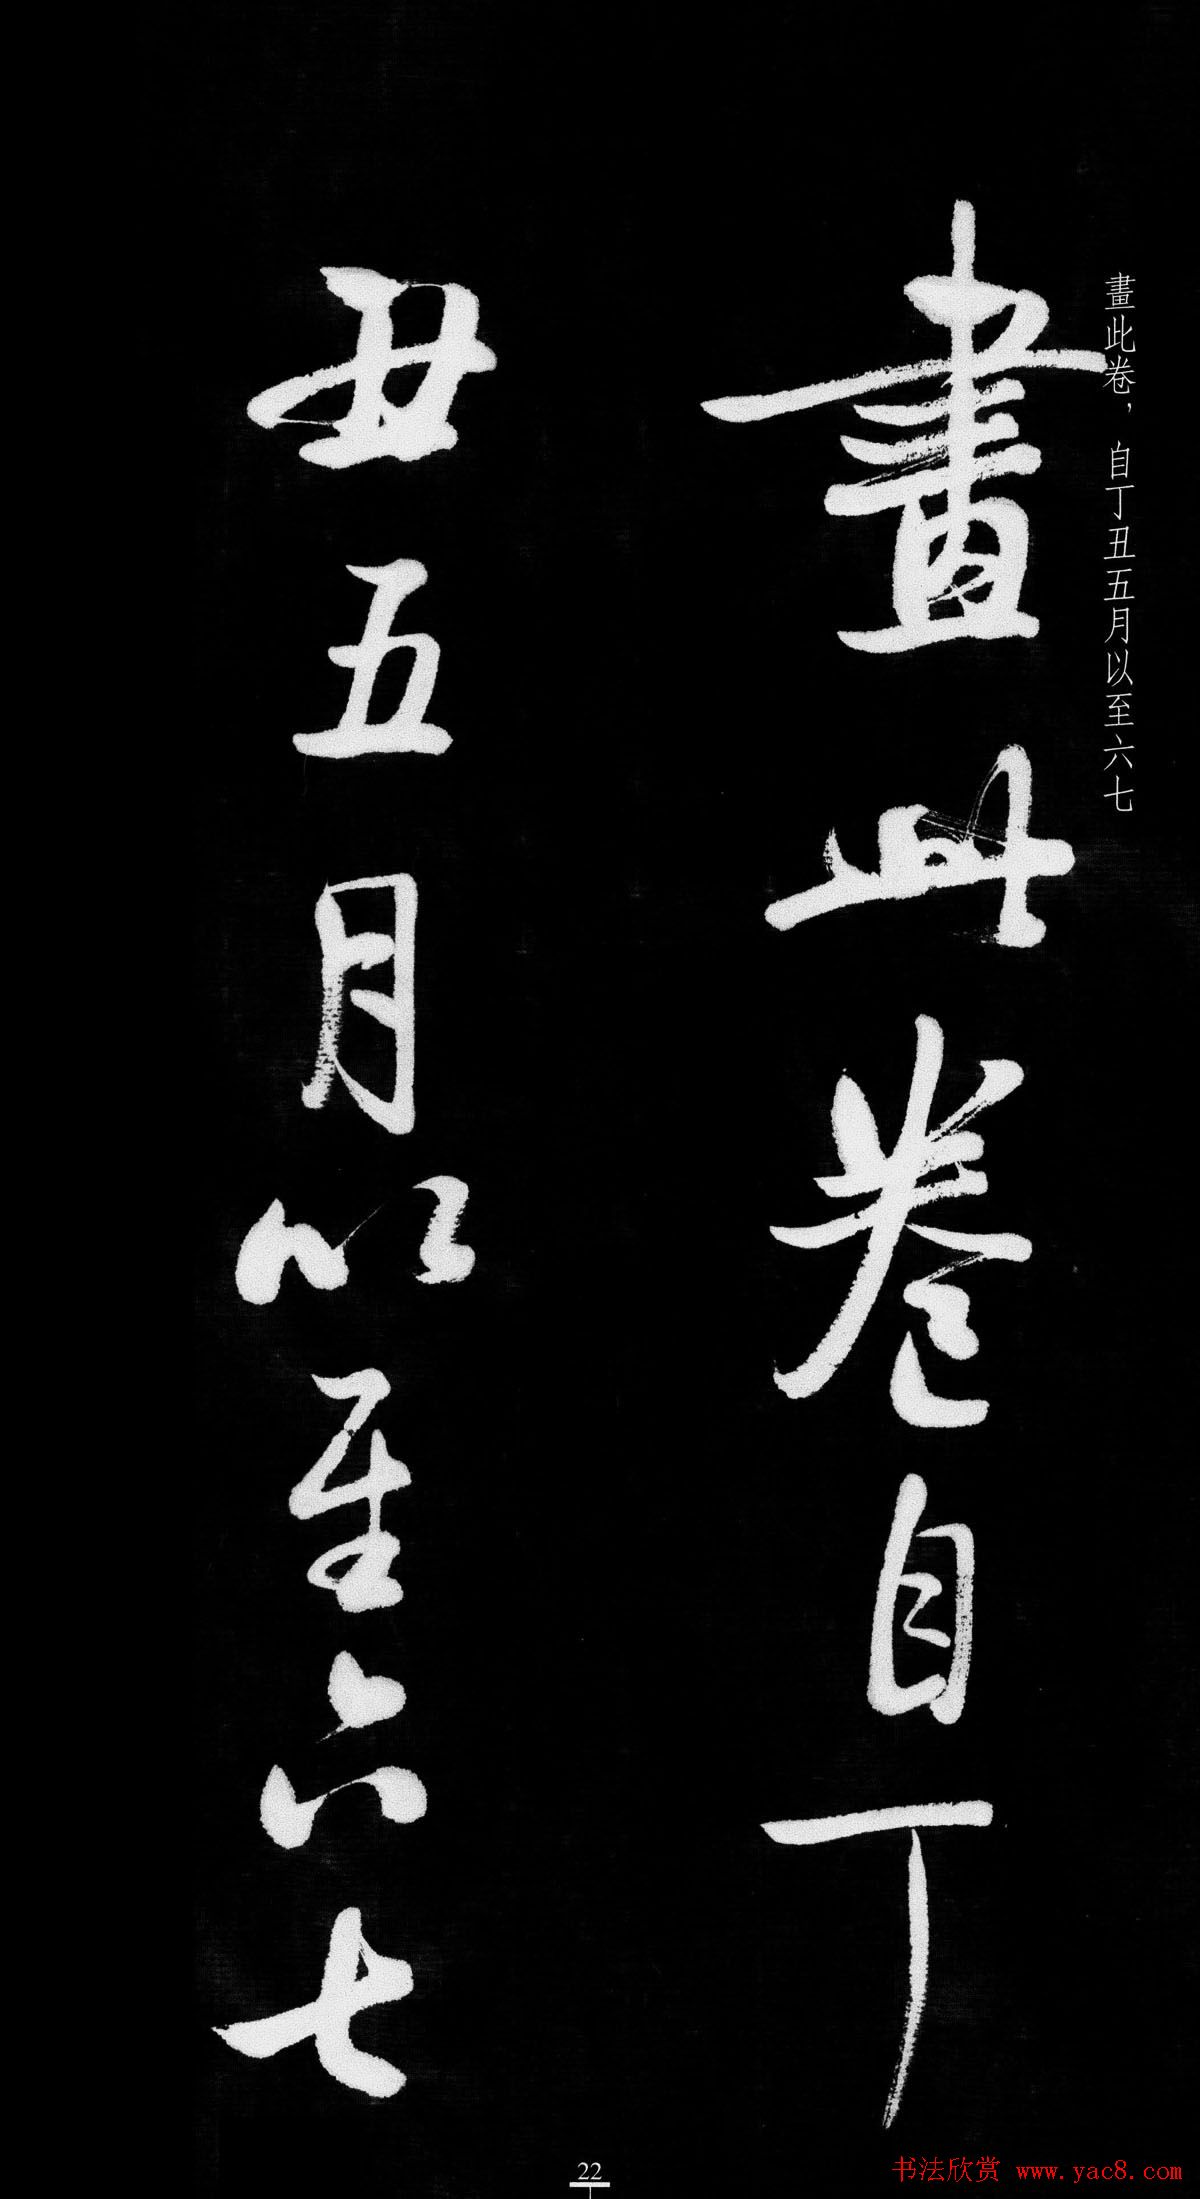 畫此卷，自丁丑五月以至六七
畫此卷自丁
丑五月以至六七
22
书法欣赏 www.yac8.com